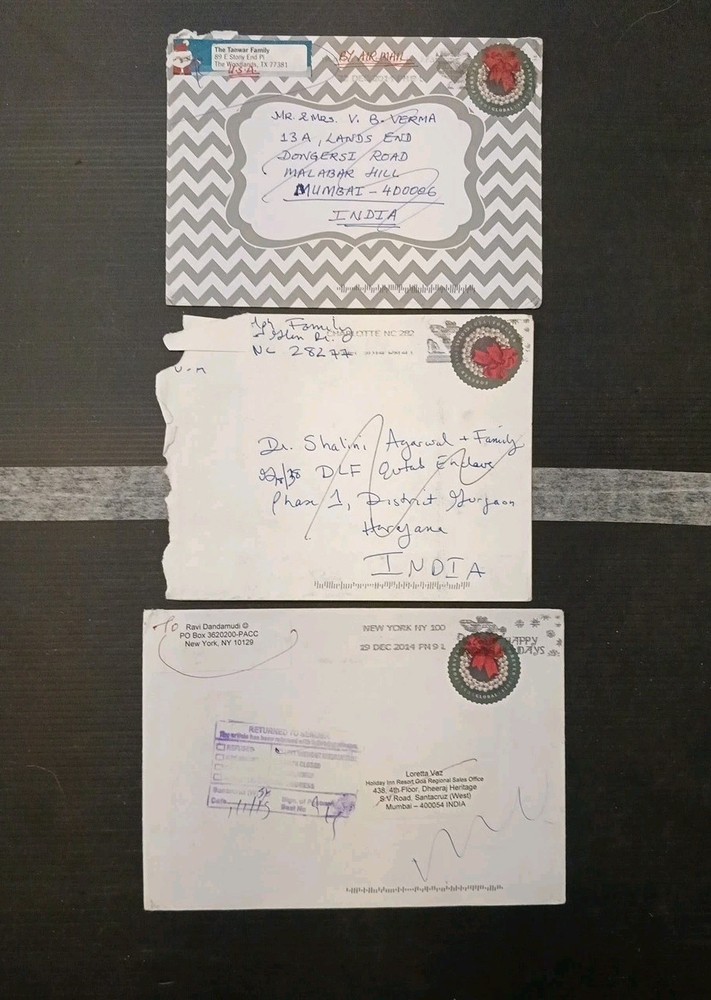 The Tanwar Family
89 E Stony End Pl
The Woodlands, TX 77381
U.S.A.
BY AIR MAIL
GLOBAL
MR. & MRS. V. B. VERMA
13A, LANDS END
DONGERSI ROAD
MALABAR HILL
MUMBAI - 400006
INDIA
Family
NC 28277
CHARLOTTE NC 282
Dr. Shalini Agarwal + Family
DLF Qutab Enclave
Phase 1, District Gurgaon
Haryana
INDIA
To
Ravi Dandamudi
PO Box 3620200-PACC
New York, NY 10129
NEW YORK NY 100
19 DEC 2014 PM 9 L
HAPPY
HOLIDAYS
RETURNED TO SENDER
REFUSED
Date 1/1/15
Loretta Vaz
Holiday Inn Resort Goa Regional Sales Office
438, 4th Floor, Dheeraj Heritage
S V Road, Santacruz (West)
Mumbai – 400054 INDIA